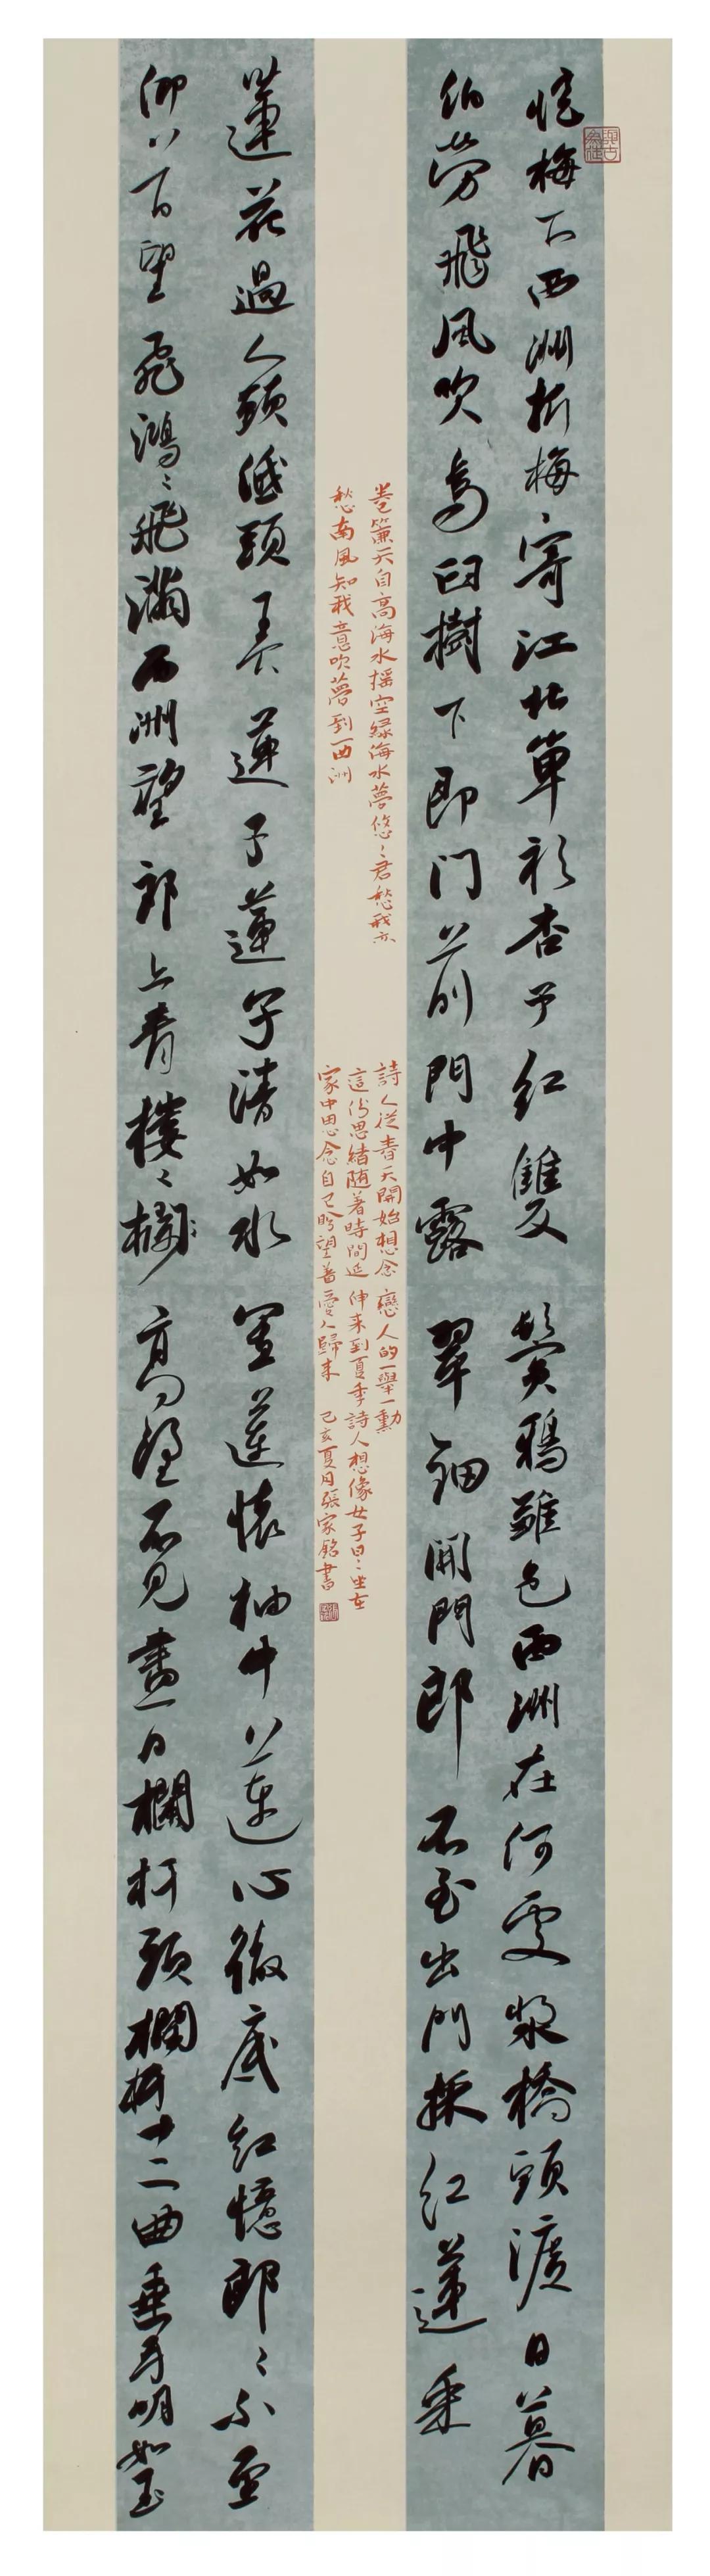 與古為徒
憶梅下西洲折梅寄江北單衫杏子紅雙鬢鴉雛色西洲在何處槳橋頭渡日暮
伯勞飛風吹烏臼樹下即门前門中露翠鈿開門郎不至出門採紅蓮采
卷簾天自高海水搖空緑海水夢悠〻君愁我亦
愁南風知我意吹夢到西洲
詩人從春天開始想念戀人的一舉一勳
這份思緒随著時間延伸来到夏季詩人想像女子日〻坐在
家中思念自己盼望着愛人歸来 己亥夏月張家銘書
蓮花過人頭低頭弄蓮子蓮子清如水置蓮懷袖中蓮心徹底紅憶郎〻不至
仰首望飛鴻〻飛滿西洲望郎上青樓〻欄高望不見盡日欄杆頭欄杆十二曲垂手明如玉